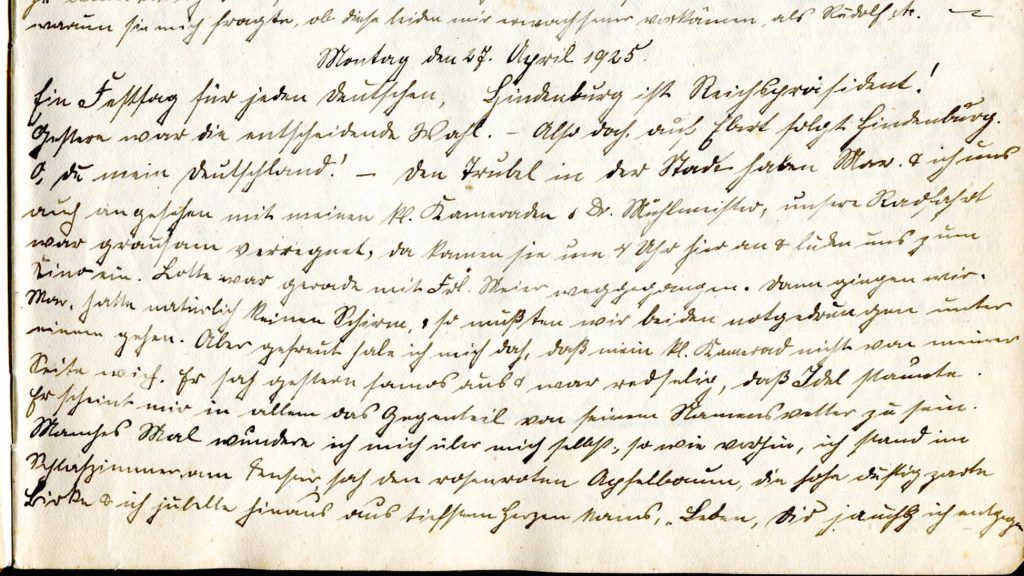 warum sie mich fragte, ob diese beiden mir erwachsener vorkämen, als Rudolf etc. —
Montag den 27. April 1925.
Ein Festtag für jeden Deutschen, Hindenburg ist Reichspräsident!
Gestern war die entscheidende Wahl. – Also doch, auf Ebert folgt Hindenburg.
O, du mein Deutschland! – Den Trubel in der Stadt haben Mar. & ich uns
auch angesehen mit meinem kl. Kameraden & Dr. Mühlmeister, unsere Radfahrt
war grausam verregnet, da kamen sie um 4 Uhr hier an & luden uns zum
Kino ein. Lotte war gerade mit Frl. Meier weggegangen. Dann gingen wir.
Mar. hatte natürlich keinen Schirm, so mußten wir beiden notgedrungen unter
meinem gehen. Aber gefreut habe ich mich doch, daß mein kl. Kamerad nicht von meiner
Seite wich. Er sah gestern famos aus & war redselig, daß Idel staunte.
Er scheint mir in allem das Gegenteil von seinem Namensvetter zu sein.
Manches Mal wundere ich mich über mich selbst, so wie vorhin, ich stand im
Schlafzimmer am Fenster, sah den rosenroten Apfelbaum, die hohe duftig zarte
Birke & ich jubelte hinaus, aus tiefstem Herzen kams, „Leben, Dir jauchz ich entgegen